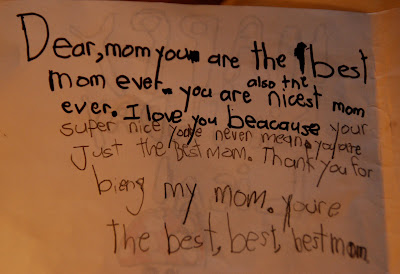 Dear, mom you are the best
mom ever. you are also the nicest mom
ever. I love you beacause your
super nice you're never mean. you are
Just the best mam. Thank you for
bieng my mom. youre
the best, best, best mom